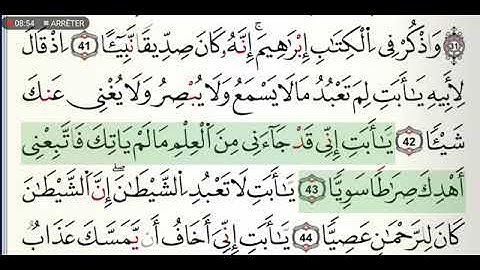 08:54 ■ ARRÊTER
31 وَاذْكُرْ فِى اِلْكِتَٰبِ إِبْرَٰهِيمَۖ إِنَّهُۥ كَانَ صِدِّيقًا نَّبِيٓـًٔا 41 اِذْ قَالَ
لِأَبِيهِ يَٰٓأَبَتِ لِمَ تَعْبُدُ مَا لَا يَسْمَعُ وَلَا يُبْصِرُ وَلَا يُغْنِى عَنكَ
شَيْـًٔا 42 يَٰٓأَبَتِ إِنِّى قَدْ جَآءَنِى مِنَ اَلْعِلْمِ مَا لَمْ يَاتِكَ فَاتَّبِعْنِىٓ
أَهْدِكَ صِرَٰطًا سَوِيًّا 43 يَٰٓأَبَتِ لَا تَعْبُدِ اِلشَّيْطَٰنَۖ إِنَّ اَلشَّيْطَٰنَ
كَانَ لِلرَّحْمَٰنِ عَصِيًّا 44 يَٰٓأَبَتِ إِنِّىَ أَخَافُ أَنْ يَّمَسَّكَ عَذَابٌ